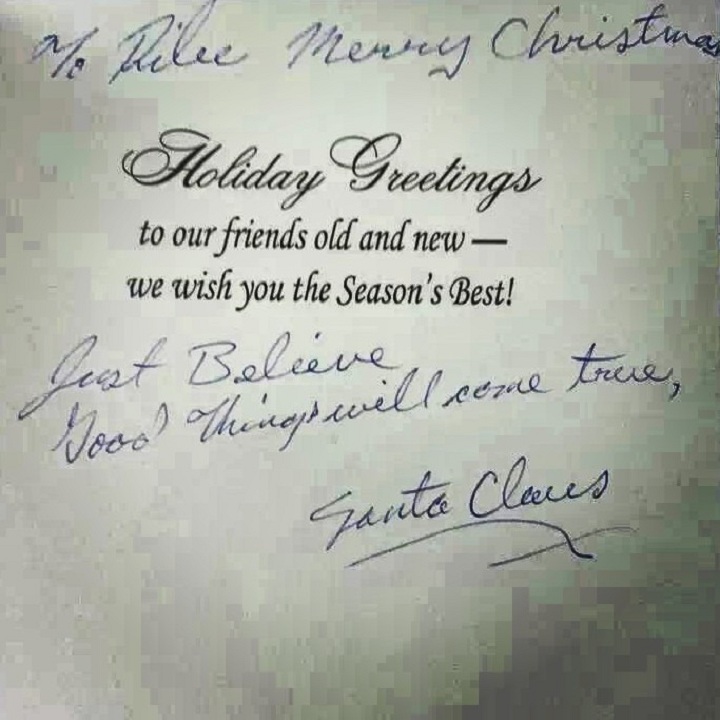 To Rilee Merry Christmas
Holiday Greetings
to our friends old and new —
we wish you the Season's Best!
Just Believe
Good Things will come true,
Santa Claus